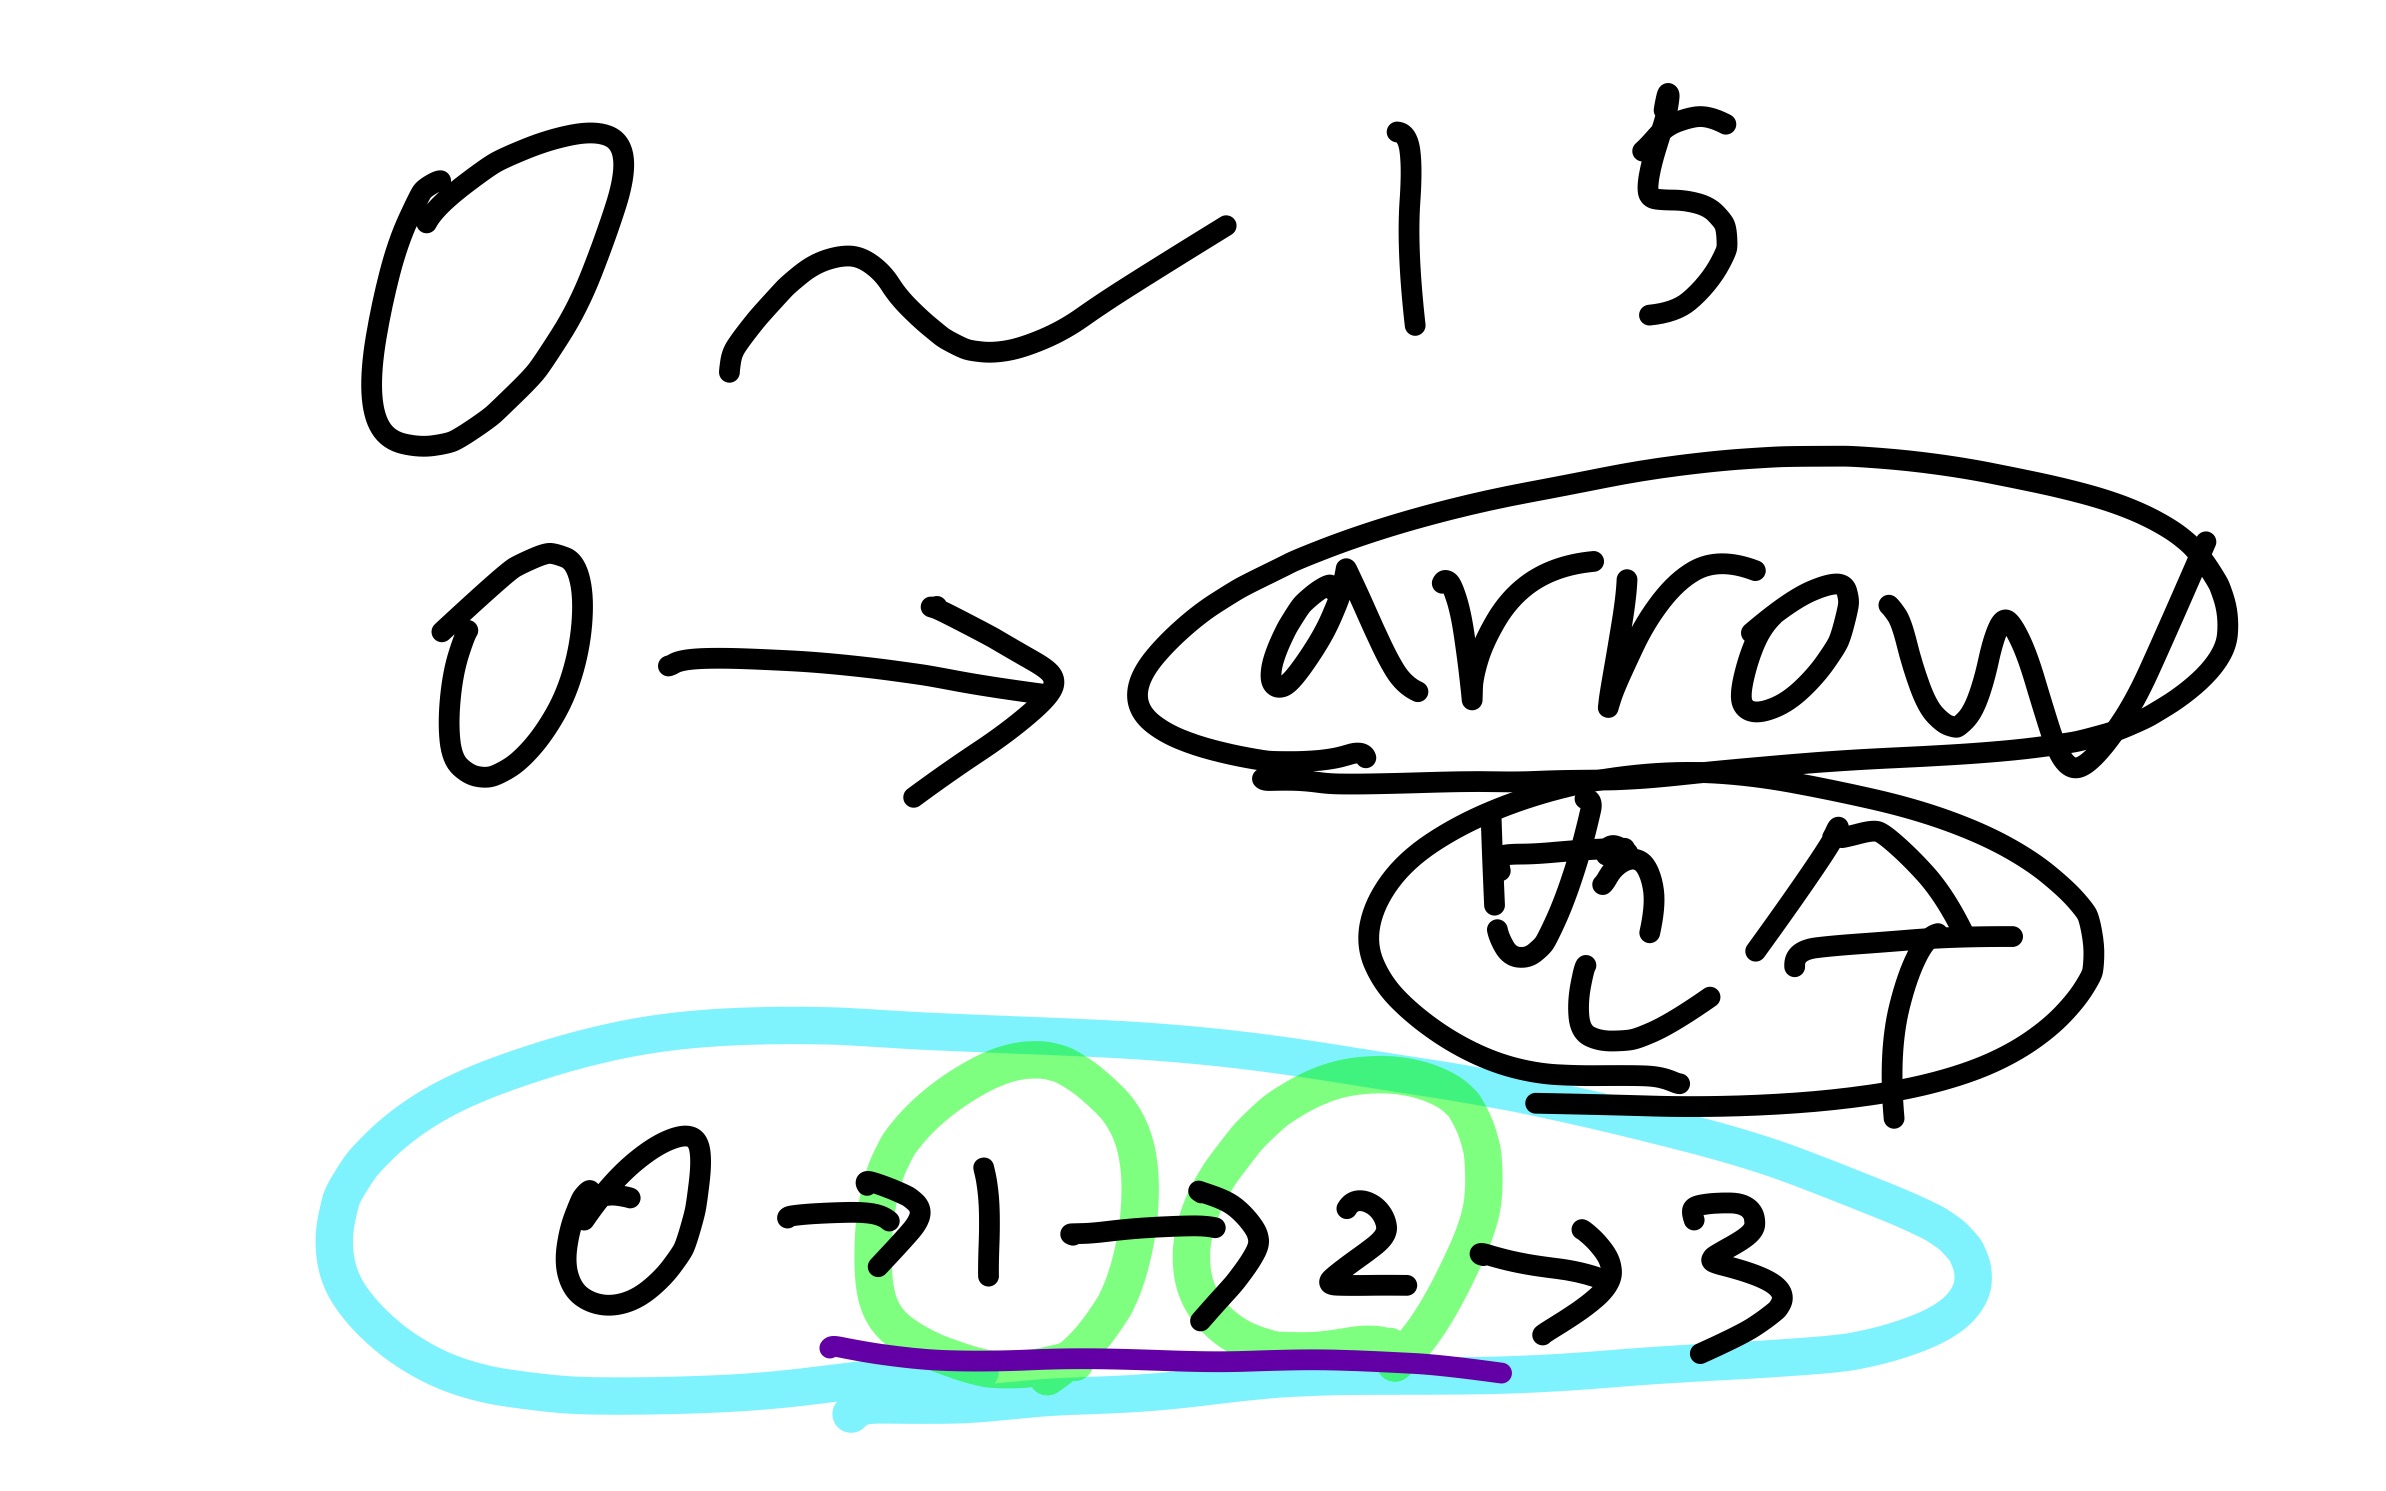 0 ~ 15
0 → arrow
변수
0 → 1 → 2 → 3